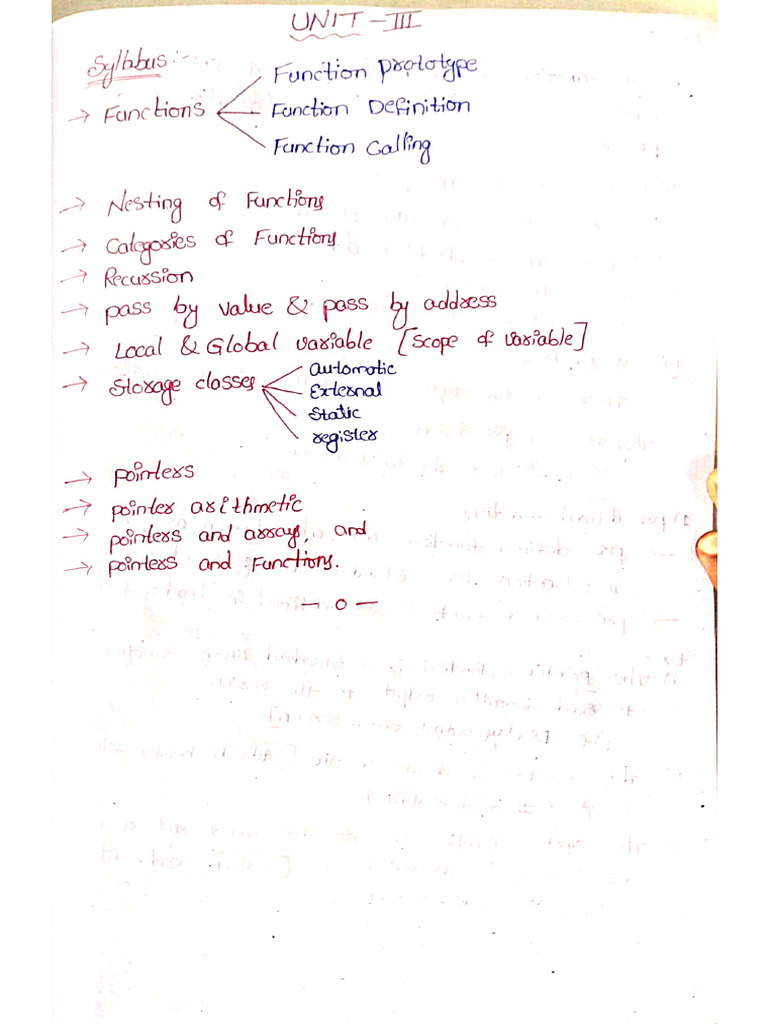 UNIT-III
Syllabus:-
Function prototype
→ Functions
Function Definition
Function Calling
→ Nesting of Functions
→ Categories of Functions
→ Recursion
→ pass by value & pass by address
→ Local & Global variable [scope of variable]
→ Storage classes
automatic
External
Static
register
→ pointers
→ pointer arithmetic
→ pointers and arrays, and
→ pointers and Functions.
— o —